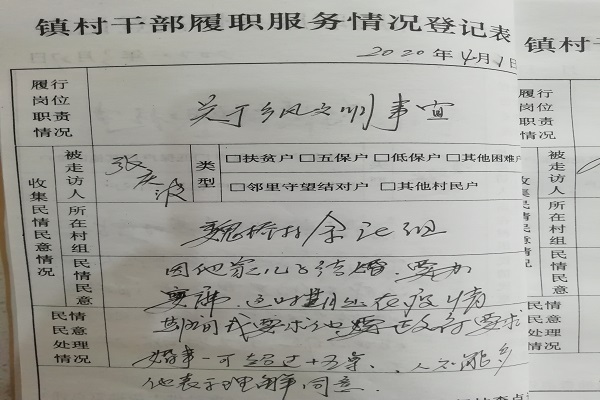 镇村干部履职服务情况登记表
2020年4月1日
履行岗位职责情况
关于乡风文明事宜
收集民情民意情况
被走访人
张庆波
类型
□扶贫户 □五保户 □低保户 □其他困难户
□邻里守望结对户 □其他村民户
所在村组
魏桥村余 组
民情民意
因他家儿子结婚、要办
宴席、这时期处在疫情
民情民意处理情况
期间我要求他 要求
婚事一 可超过十五桌、人不能多
他表示理解同意.
镇村干
履行岗位职责情况
收集民情民意情况
被走访人
所在村组
民情民意
民情民意处理情况